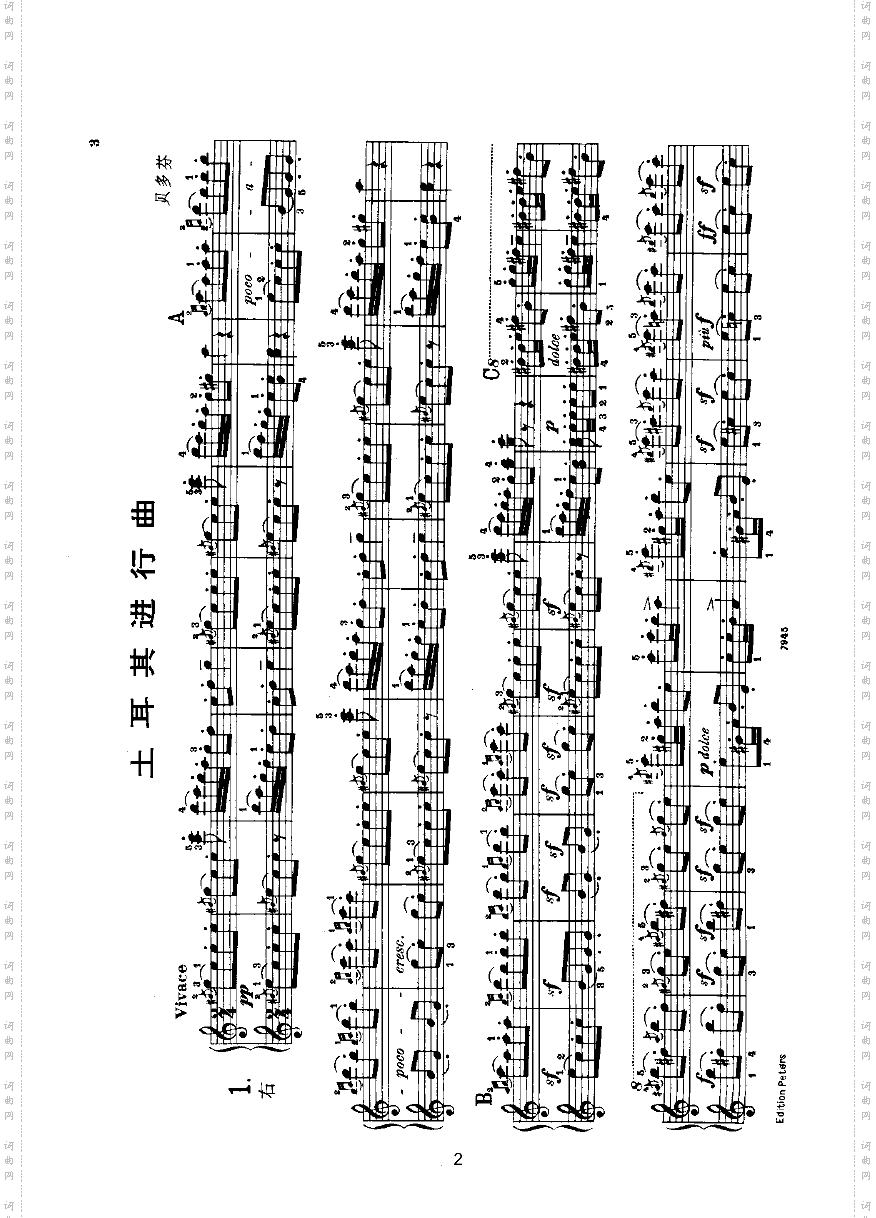 3
土耳其进行曲
贝多芬
1.
右
Vivace
A
pp
poco - - a -
- poco - - cresc.
B
C
8
sf sf sf sf sf sf sf
p
dolce
8
f sf sf sf sf
p dolce
sf sf più f ff sf
Edition Peters
7945
2
词曲网